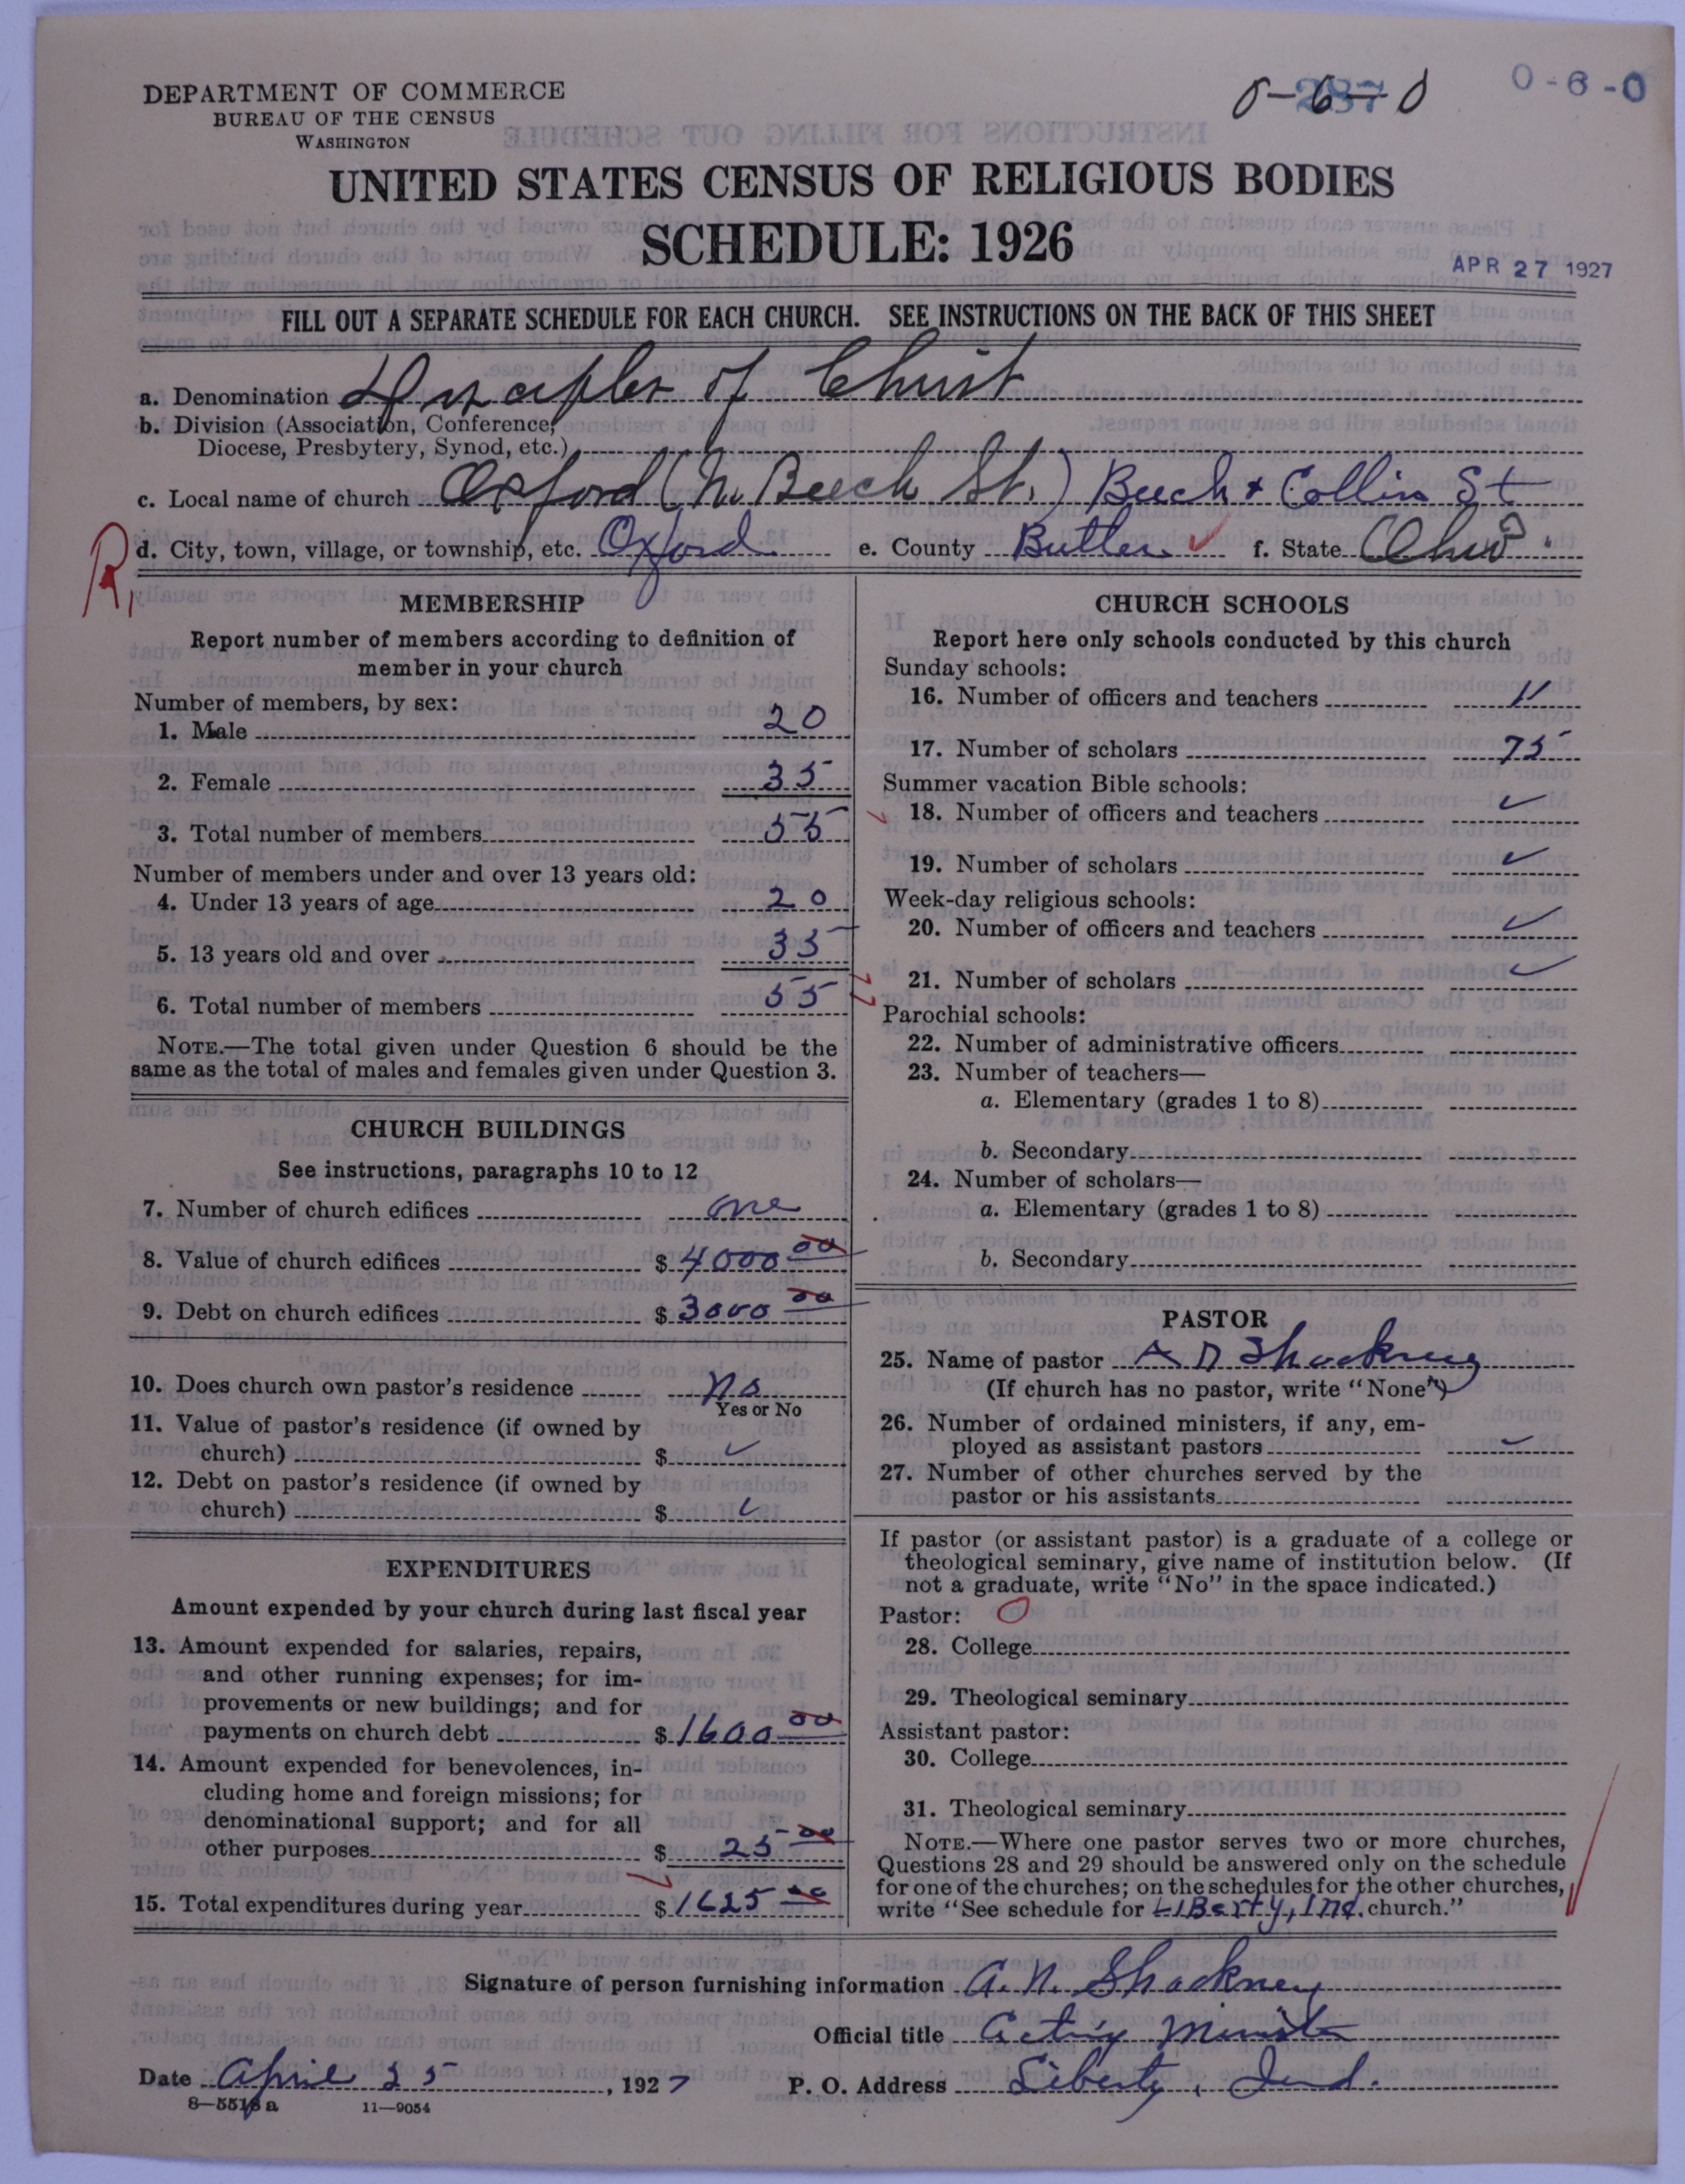 DEPARTMENT OF COMMERCE
BUREAU OF THE CENSUS
WASHINGTON
0-6-0
0-6-0
UNITED STATES CENSUS OF RELIGIOUS BODIES
SCHEDULE: 1926
APR 27 1927
FILL OUT A SEPARATE SCHEDULE FOR EACH CHURCH. SEE INSTRUCTIONS ON THE BACK OF THIS SHEET
a. Denomination Disciples of Christ
b. Division (Association, Conference,
Diocese, Presbytery, Synod, etc.)
c. Local name of church Oxford (N. Beech St.) Beech & Collins St
d. City, town, village, or township, etc. Oxford e. County Butler f. State Ohio
MEMBERSHIP
Report number of members according to definition of
member in your church
Number of members, by sex:
1. Male 20
2. Female 35
3. Total number of members 55
Number of members under and over 13 years old:
4. Under 13 years of age 20
5. 13 years old and over 35
6. Total number of members 55
NOTE.—The total given under Question 6 should be the
same as the total of males and females given under Question 3.
CHURCH BUILDINGS
See instructions, paragraphs 10 to 12
7. Number of church edifices one
8. Value of church edifices $ 4000 00
9. Debt on church edifices $ 3000 00
10. Does church own pastor's residence no
Yes or No
11. Value of pastor's residence (if owned by
church) $ ✓
12. Debt on pastor's residence (if owned by
church) $ ✓
EXPENDITURES
Amount expended by your church during last fiscal year
13. Amount expended for salaries, repairs,
and other running expenses; for im-
provements or new buildings; and for
payments on church debt $ 1600 00
14. Amount expended for benevolences, in-
cluding home and foreign missions; for
denominational support; and for all
other purposes $ 25 00
15. Total expenditures during year $ 1625 00
CHURCH SCHOOLS
Report here only schools conducted by this church
Sunday schools:
16. Number of officers and teachers 11
17. Number of scholars 75
Summer vacation Bible schools:
18. Number of officers and teachers ✓
19. Number of scholars ✓
Week-day religious schools:
20. Number of officers and teachers ✓
21. Number of scholars ✓
Parochial schools:
22. Number of administrative officers
23. Number of teachers—
a. Elementary (grades 1 to 8)
b. Secondary
24. Number of scholars—
a. Elementary (grades 1 to 8)
b. Secondary
PASTOR
25. Name of pastor A N Shockney
(If church has no pastor, write "None")
26. Number of ordained ministers, if any, em-
ployed as assistant pastors ✓
27. Number of other churches served by the
pastor or his assistants
If pastor (or assistant pastor) is a graduate of a college or
theological seminary, give name of institution below. (If
not a graduate, write "No" in the space indicated.)
Pastor: O
28. College
29. Theological seminary
Assistant pastor:
30. College
31. Theological seminary
NOTE.—Where one pastor serves two or more churches,
Questions 28 and 29 should be answered only on the schedule
for one of the churches; on the schedules for the other churches,
write "See schedule for LIBerty, Ind. church."
Signature of person furnishing information A. N. Shockney
Official title Acting Minister
Date April 25, 1927 P. O. Address Liberty, Ind.
11—9054